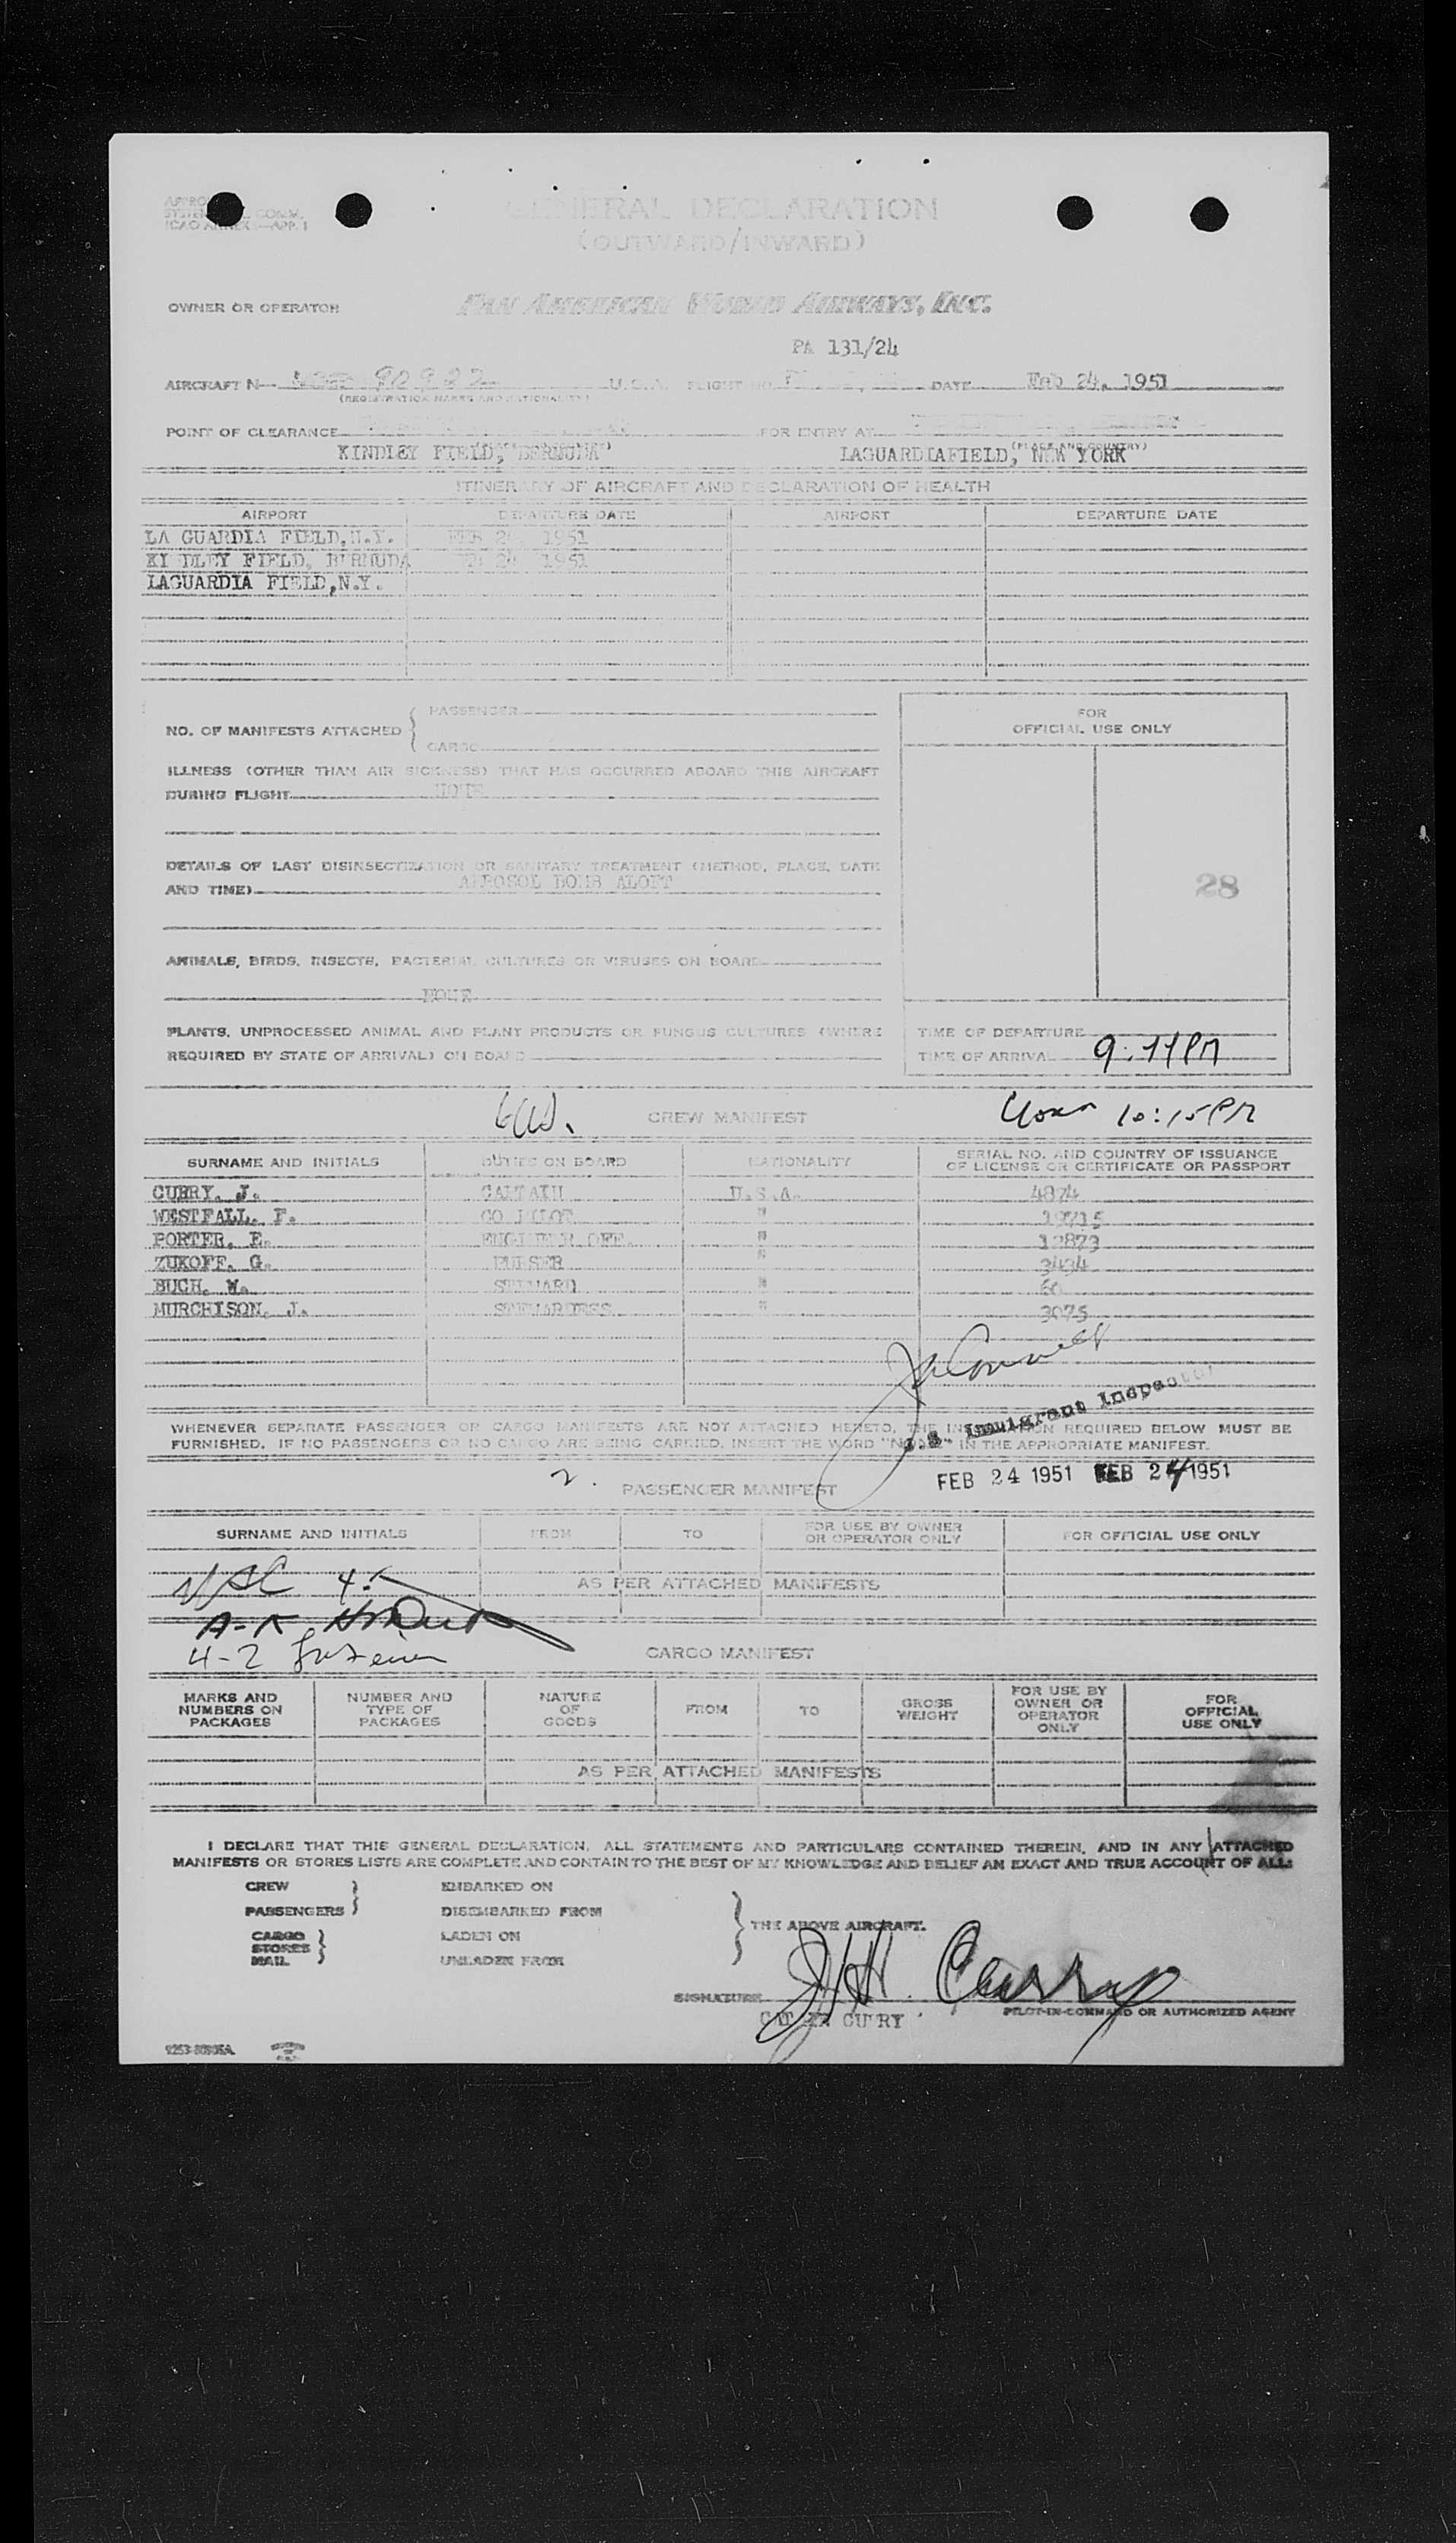 GENERAL DECLARATION
(OUTWARD/INWARD)
OWNER OR OPERATOR PAN AMERICAN WORLD AIRWAYS, INC.
PA 131/24
AIRCRAFT N— 90922 U.S.A. FLIGHT NO. DATE Feb 24, 1951
(REGISTRATION MARKS AND NATIONALITY)
POINT OF CLEARANCE FOR ENTRY AT
KINDLEY FIELD, BERMUDA LAGUARDIAFIELD, NEW YORK
(PLACE AND COUNTRY)
ITINERARY OF AIRCRAFT AND DECLARATION OF HEALTH
AIRPORT DEPARTURE DATE AIRPORT DEPARTURE DATE
LA GUARDIA FIELD,N.Y. FEB 24, 1951
KI DLEY FIELD, BERMUDA FEB 24 1951
LAGUARDIA FIELD,N.Y.
NO. OF MANIFESTS ATTACHED { PASSENGER
CARGO
FOR
OFFICIAL USE ONLY
ILLNESS (OTHER THAN AIR SICKNESS) THAT HAS OCCURRED ABOARD THIS AIRCRAFT
DURING FLIGHT NONE
DETAILS OF LAST DISINSECTIZATION OR SANITARY TREATMENT (METHOD, PLACE, DATE
AND TIME) AEROSOL BOMB ALOFT
28
ANIMALS, BIRDS, INSECTS, BACTERIAL CULTURES OR VIRUSES ON BOARD
NONE
PLANTS, UNPROCESSED ANIMAL AND PLANT PRODUCTS OR FUNGUS CULTURES (WHERE
REQUIRED BY STATE OF ARRIVAL) ON BOARD
TIME OF DEPARTURE
TIME OF ARRIVAL 9:44PM
CREW MANIFEST 10:15PM
SURNAME AND INITIALS DUTIES ON BOARD NATIONALITY SERIAL NO. AND COUNTRY OF ISSUANCE
OF LICENSE OR CERTIFICATE OR PASSPORT
CURRY, J. CAPTAIN U.S.A. 4874
WESTFALL, F. CO PILOT " 19715
PORTER, E. ENGINEER OFF. " 12873
ZUKOFF, G. PURSER " 3434
BUCH, W. STEWARD " 60
MURCHISON, J. STEWARDESS " 3075
Immigrant Inspector
WHENEVER SEPARATE PASSENGER OR CARGO MANIFESTS ARE NOT ATTACHED HERETO, THE INFORMATION REQUIRED BELOW MUST BE
FURNISHED. IF NO PASSENGERS OR NO CARGO ARE BEING CARRIED, INSERT THE WORD "NONE" IN THE APPROPRIATE MANIFEST.
2. PASSENGER MANIFEST
FEB 24 1951 FEB 24 1951
SURNAME AND INITIALS FROM TO FOR USE BY OWNER
OR OPERATOR ONLY FOR OFFICIAL USE ONLY
AS PER ATTACHED MANIFESTS
A-K
4-2
CARGO MANIFEST
MARKS AND
NUMBERS ON
PACKAGES NUMBER AND
TYPE OF
PACKAGES NATURE
OF
GOODS FROM TO GROSS
WEIGHT FOR USE BY
OWNER OR
OPERATOR
ONLY FOR
OFFICIAL
USE ONLY
AS PER ATTACHED MANIFESTS
I DECLARE THAT THIS GENERAL DECLARATION, ALL STATEMENTS AND PARTICULARS CONTAINED THEREIN, AND IN ANY ATTACHED
MANIFESTS OR STORES LISTS ARE COMPLETE AND CONTAIN TO THE BEST OF MY KNOWLEDGE AND BELIEF AN EXACT AND TRUE ACCOUNT OF ALL:
CREW
PASSENGERS } EMBARKED ON
DISEMBARKED FROM
CARGO
STORES
MAIL } LADEN ON
UNLADEN FROM
} THE ABOVE AIRCRAFT.
SIGNATURE J.H. Curry
PILOT-IN-COMMAND OR AUTHORIZED AGENT